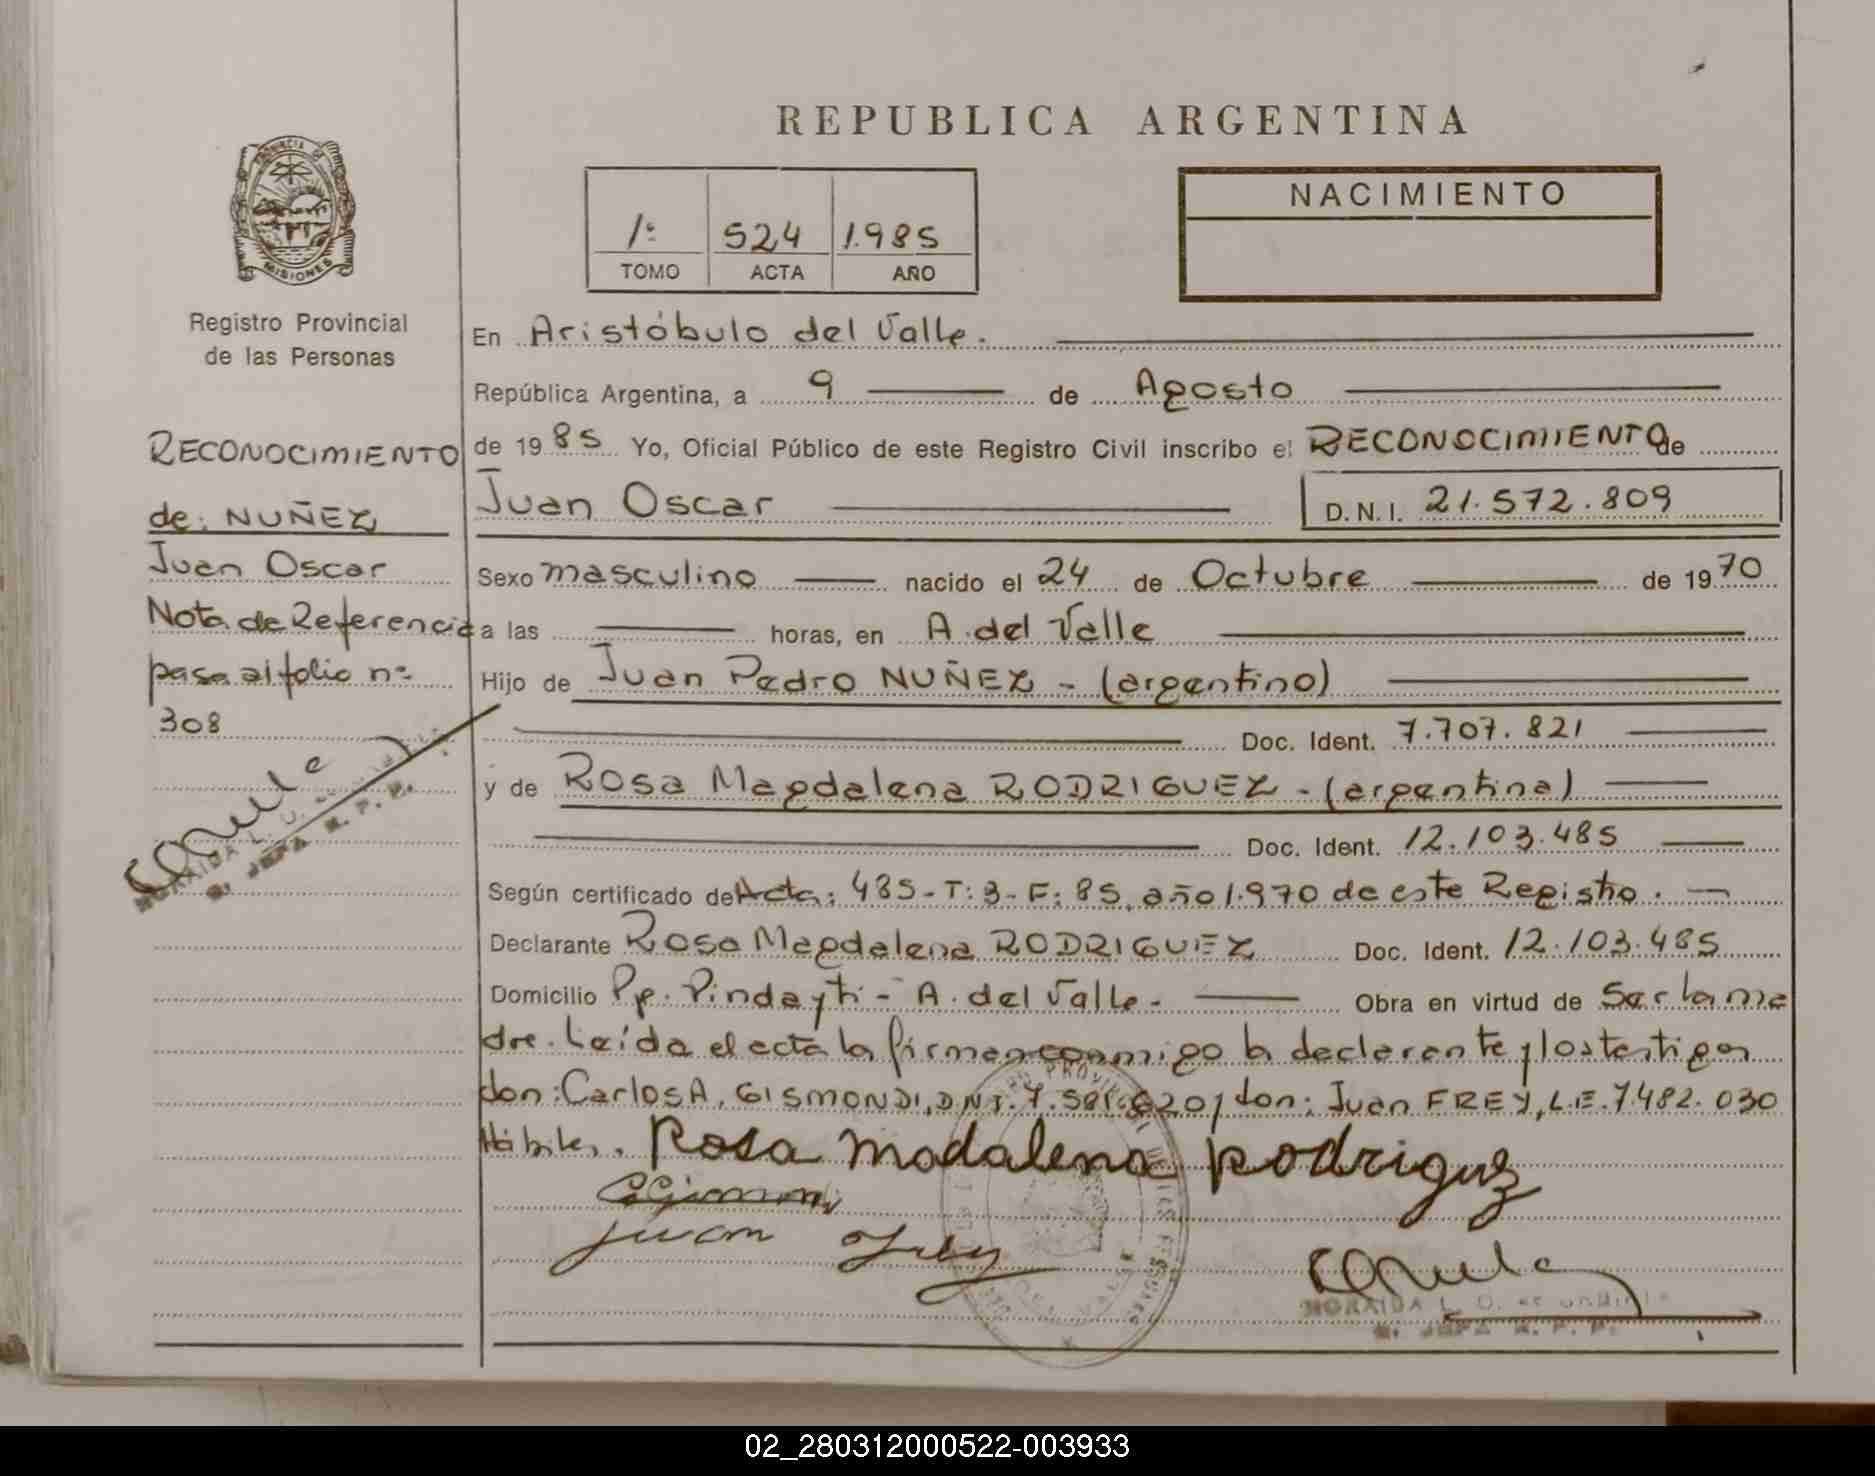 REPUBLICA ARGENTINA
PROVINCIA DE
MISIONES
Registro Provincial
de las Personas
1º 524 1.985
TOMO ACTA AÑO
NACIMIENTO
RECONOCIMIENTO
de: NUÑEZ,
Juan Oscar
Nota de Referencia
pasa al folio nº
308
En Aristóbulo del Valle.
República Argentina, a 9 de Agosto
de 1985 Yo, Oficial Público de este Registro Civil inscribo el RECONOCIMIENTO de
Juan Oscar D.N.I. 21.572.809
Sexo masculino nacido el 24 de Octubre de 1970
a las horas, en A. del Valle
Hijo de Juan Pedro NUÑEZ - (argentino)
Doc. Ident. 7.707.821
y de Rosa Magdalena RODRIGUEZ - (argentina)
Doc. Ident. 12.103.485
Según certificado de Acta: 485-T:3-F:85, año 1.970 de este Registro.
Declarante Rosa Magdalena RODRIGUEZ Doc. Ident. 12.103.485
Domicilio Pp. Pindayti - A. del Valle- Obra en virtud de Ser la ma
dre. Leída el acta la firman conmigo la declarante y los testigos
don: Carlos A. GISMONDI, DNI. y don: Juan FREY, L.E. 7482.030
Hábiles. Rosa madalena Rodriguz
Juan Frey
02_280312000522-003933